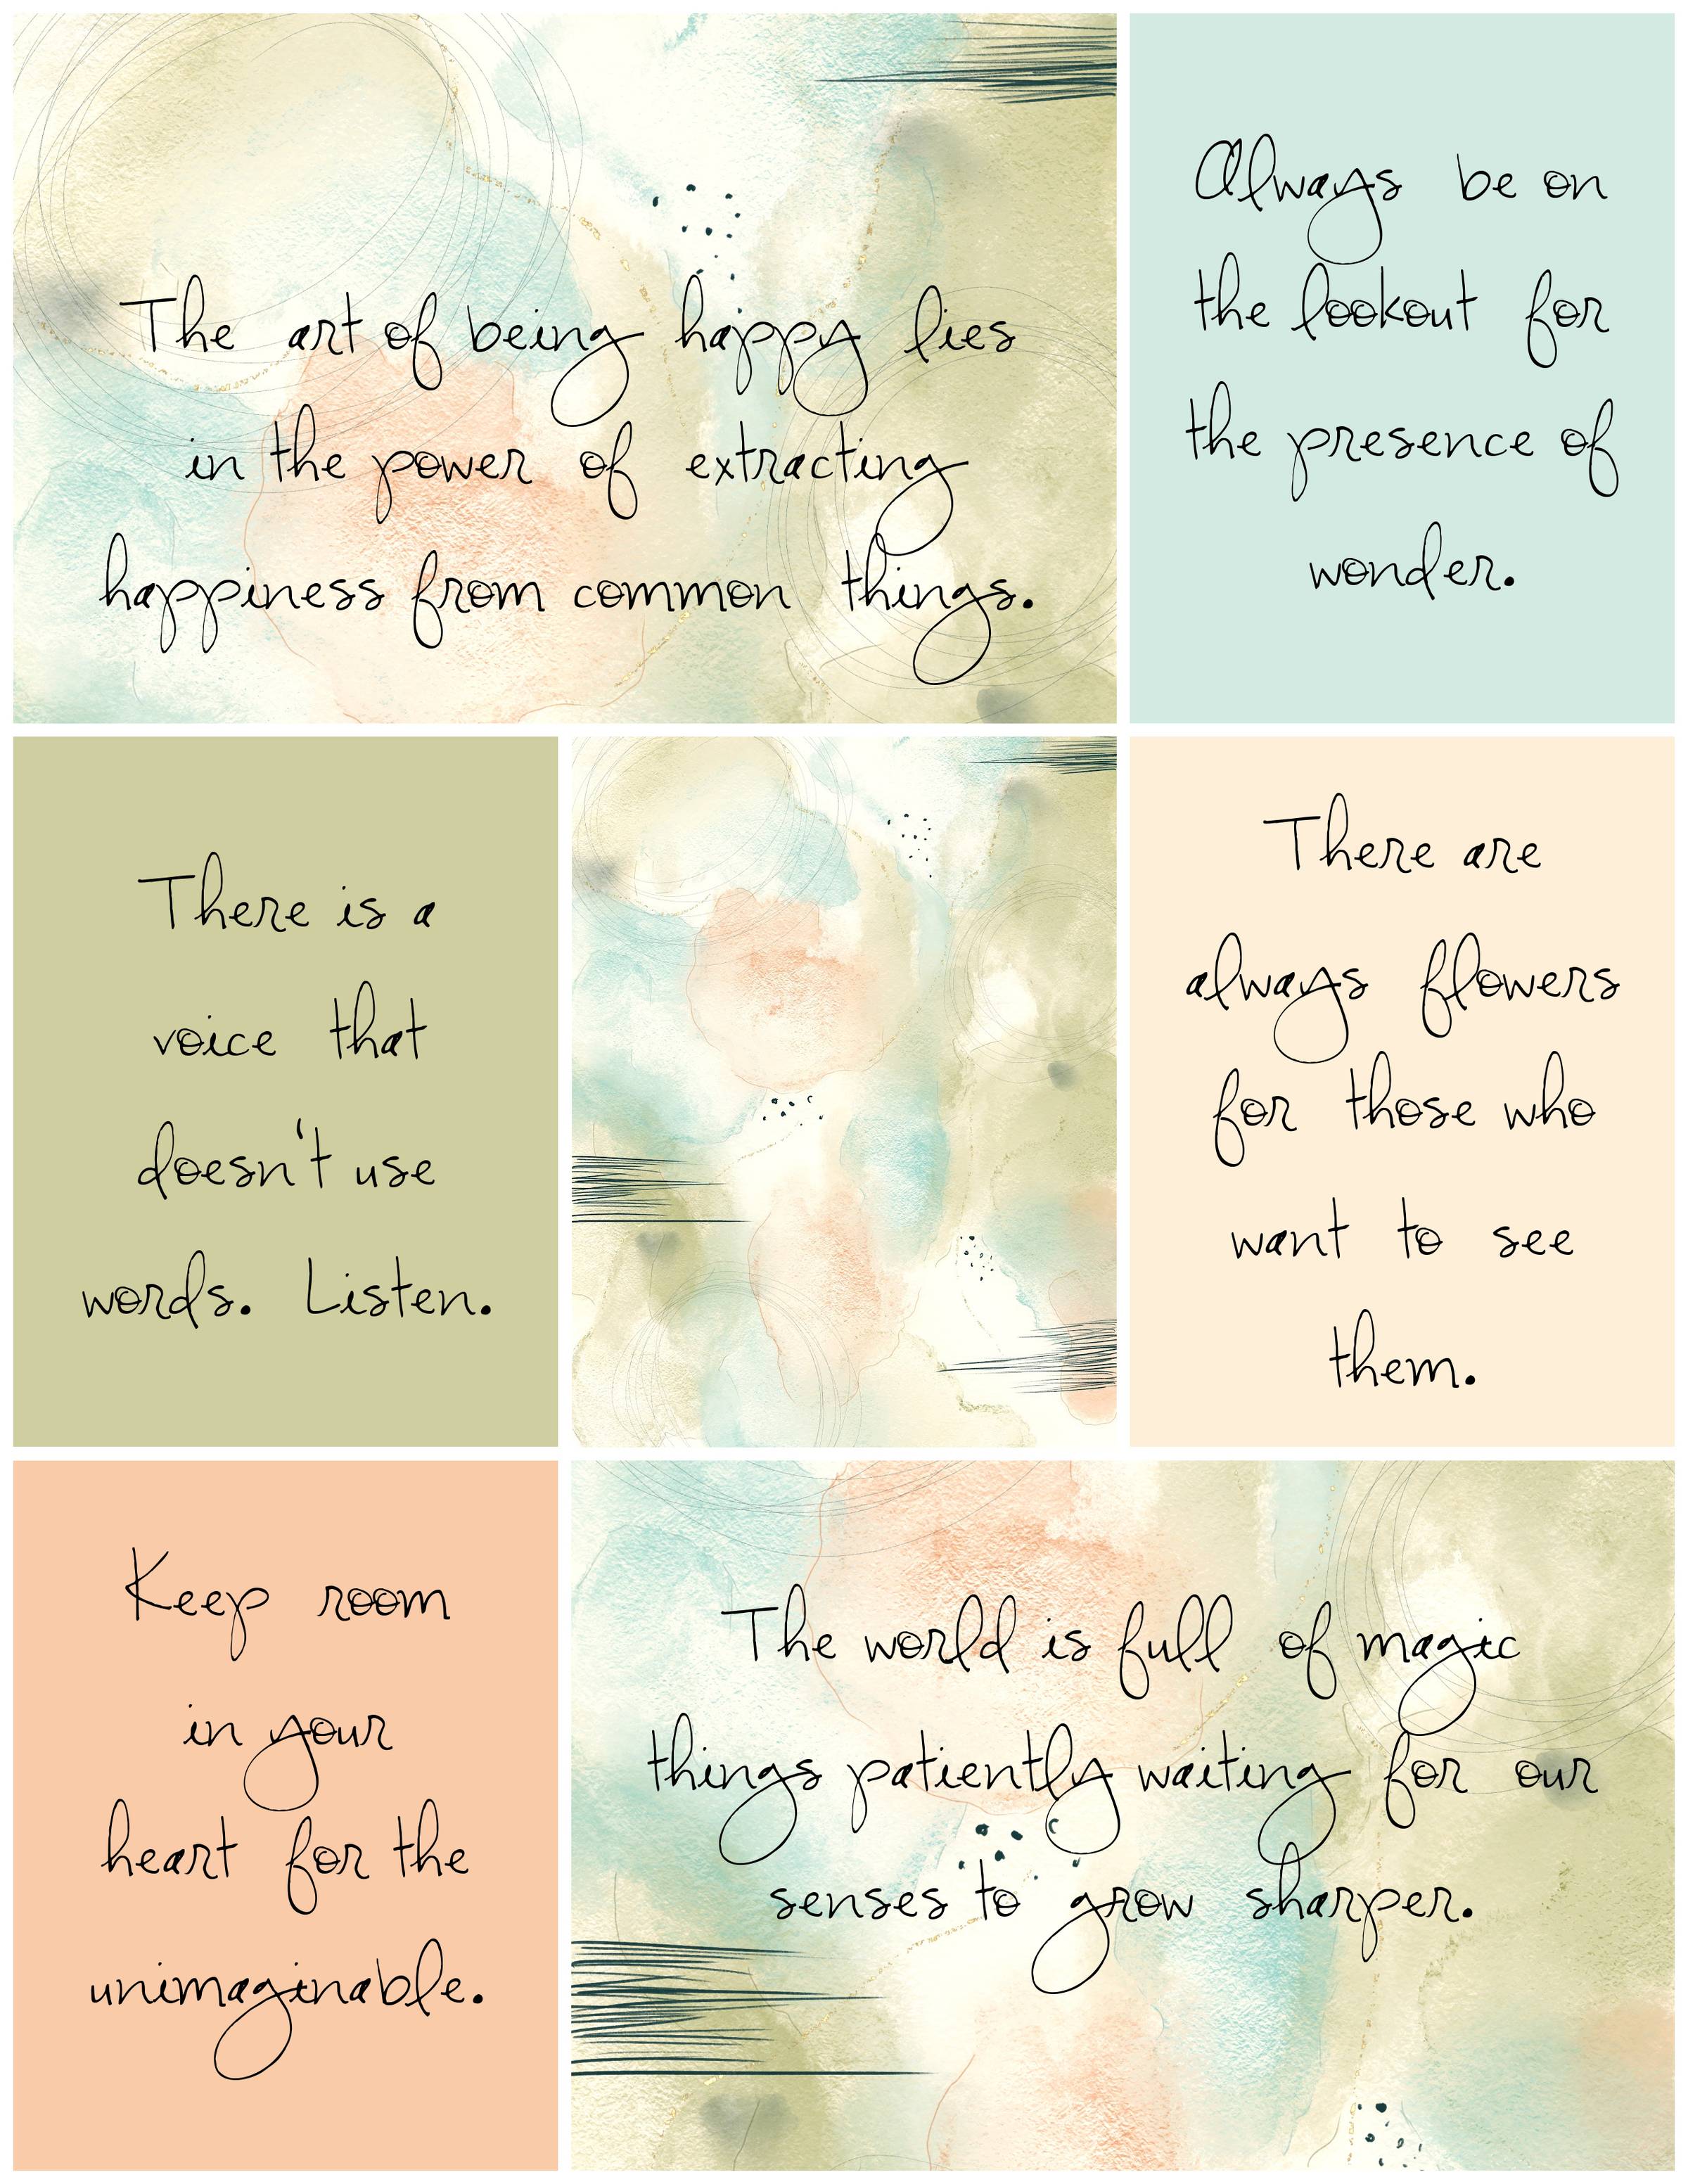 The art of being happy lies
in the power of extracting
happiness from common things.
Always be on
the lookout for
the presence of
wonder.
There is a
voice that
doesn't use
words. Listen.
There are
always flowers
for those who
want to see
them.
Keep room
in your
heart for the
unimaginable.
The world is full of magic
things patiently waiting for our
senses to grow sharper.